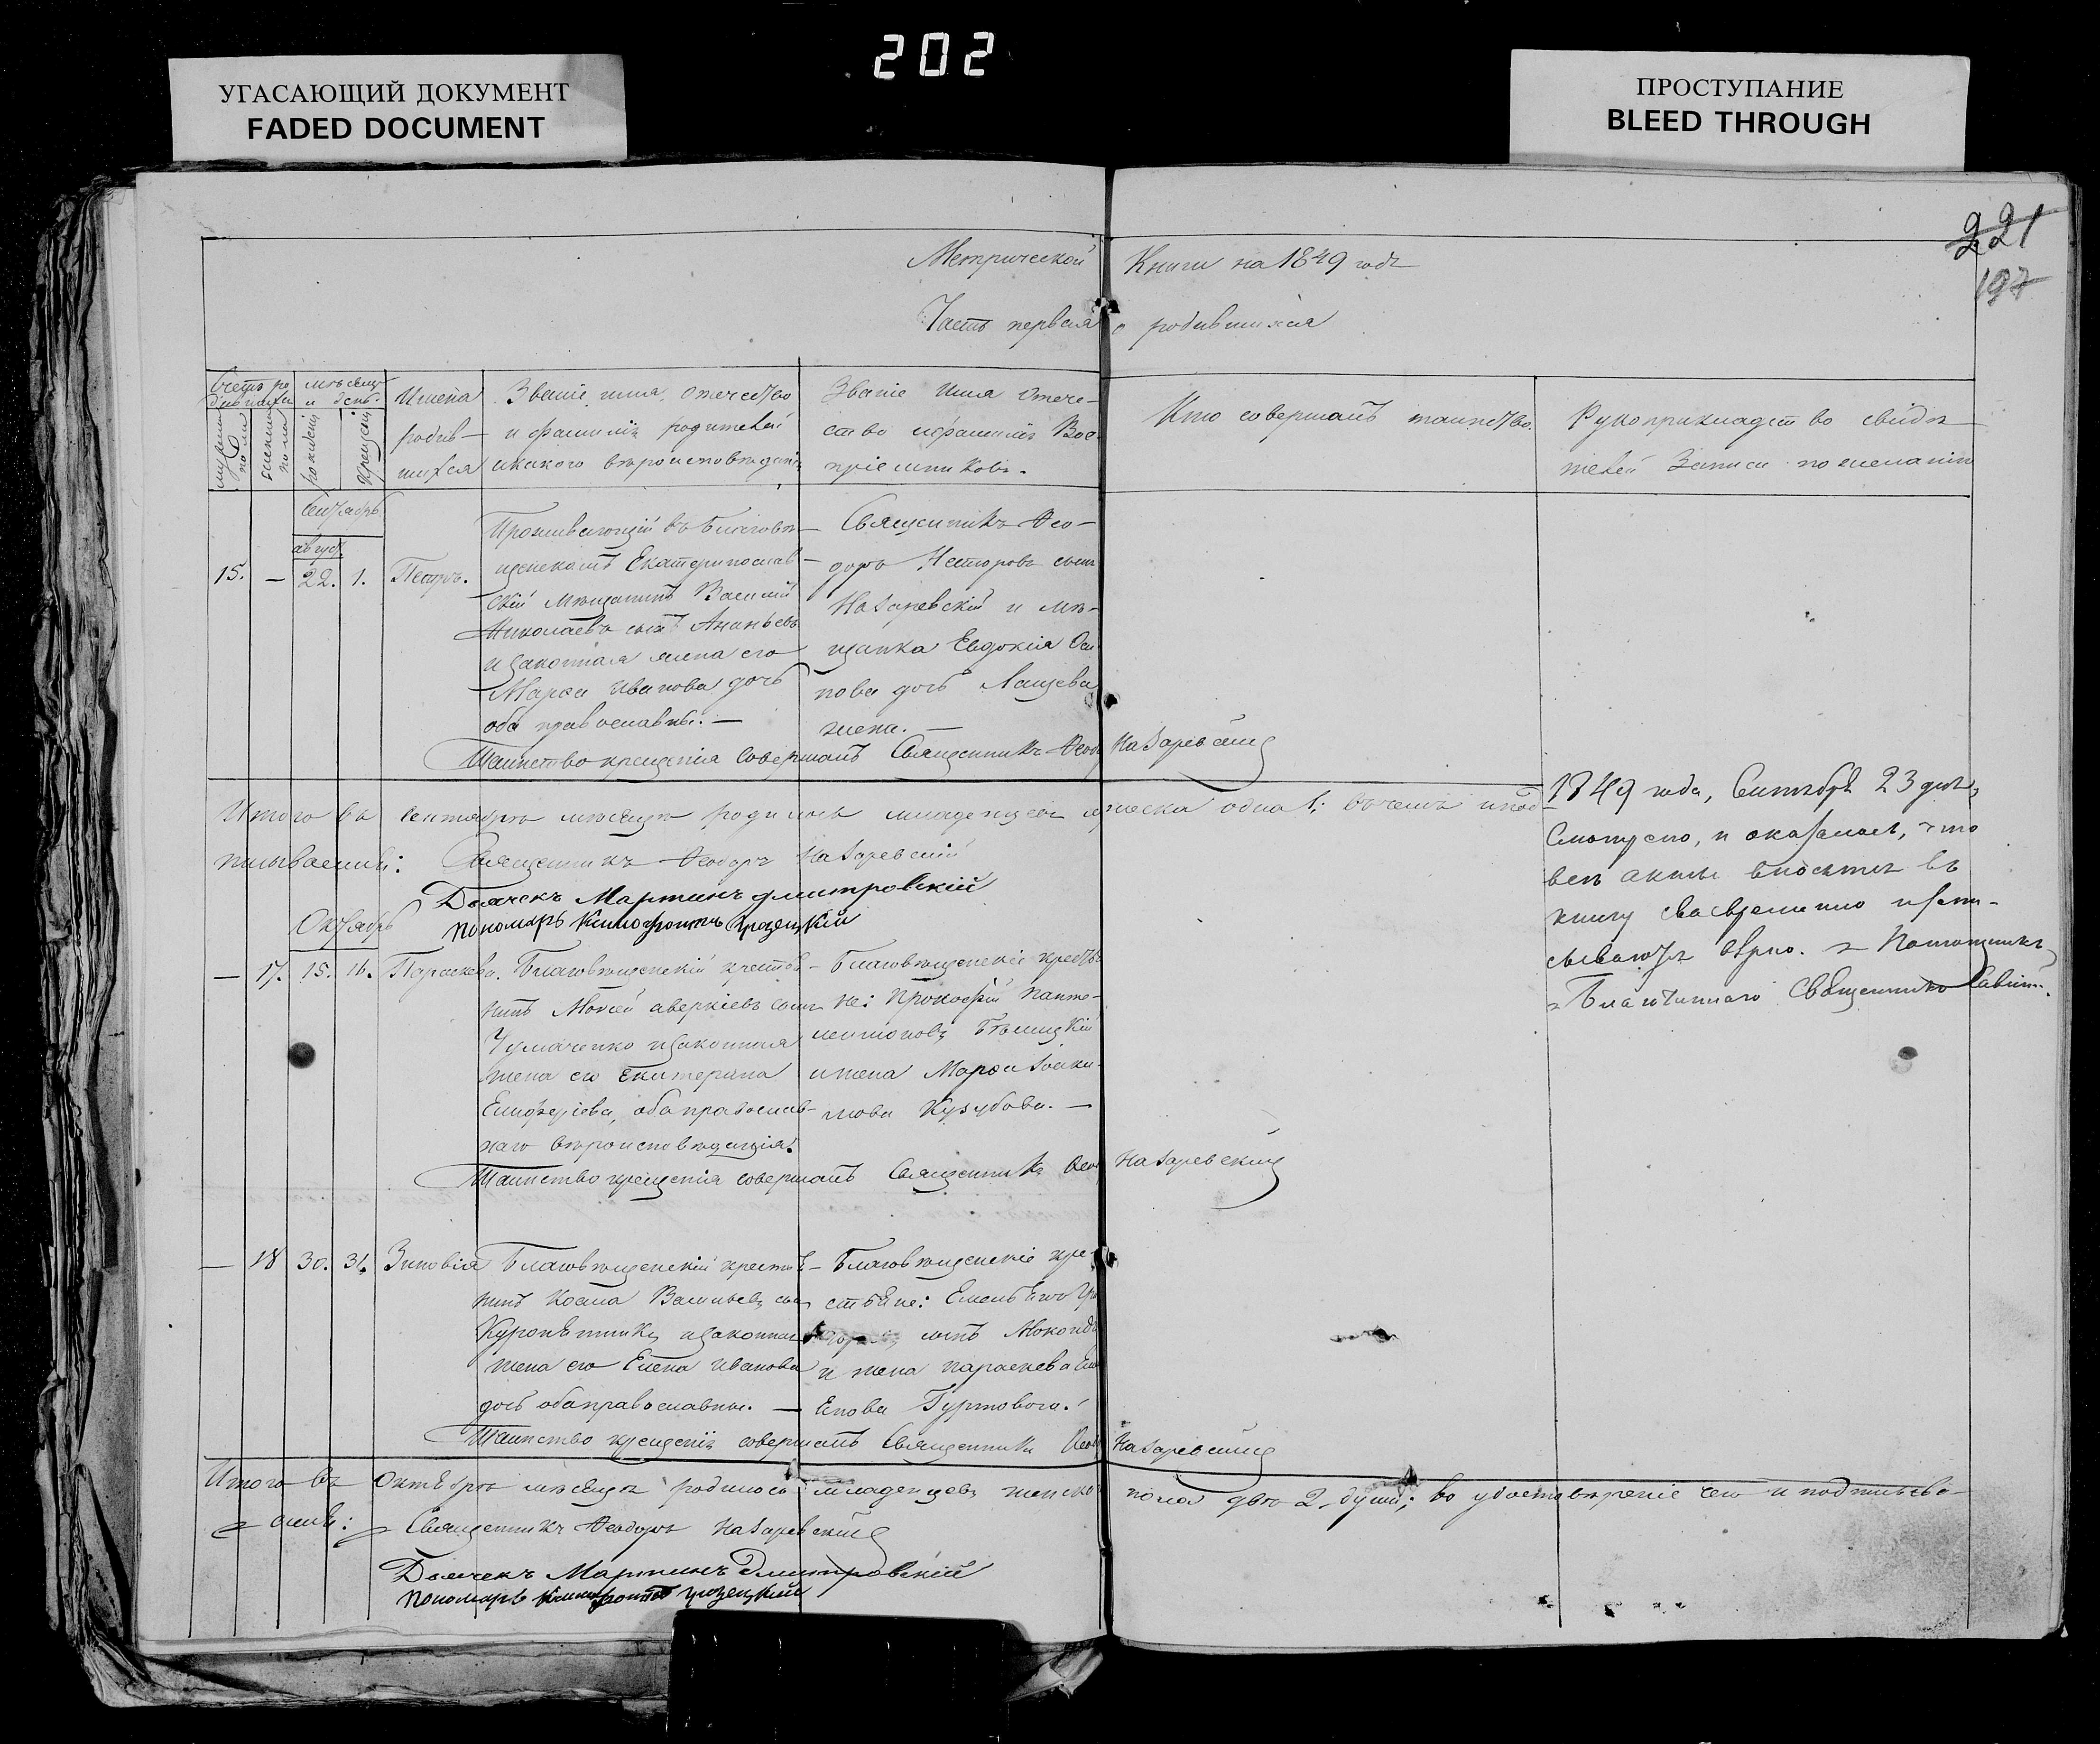 202
УГАСАЮЩИЙ ДОКУМЕНТ
FADED DOCUMENT
ПРОСТУПАНИЕ
BLEED THROUGH
221
197
Метрической Книги на 1849 годъ
Часть первая о родившихся
Счетъ родившихся
мужеска пола
женска пола
мѣсяцъ и день
рожденія
крещенія
Имена
родив-
шихся
Званіе, имя, отечество
и фамилія родителей
и какого вѣроисповѣданія
Званіе Имя Отече-
ство и фамилія Вос-
пріемниковъ.
Кто совершалъ таинство.
Рукоприкладство свидѣ-
телей Записи по желанію
Сентябрь
август.
15. — 22. 1. Петръ.
Проживающій въ Благовѣ-
щенскомъ Екатеринослав-
скій Мѣщанинъ Василий
Николаевъ сынъ Ананьевъ
и законная жена его
Марфа Иванова дочь
оба православны. —
Священникъ Ѳео-
доръ Несторовъ сынъ
Назаревскій и мѣ-
щанка Евдокія Оси
пова дочь Лащева
жена. —
Таинство крещенія совершалъ Священникъ Ѳеодо Назаревскій
Итого въ сентябрѣ мѣсяцѣ родилось младенцевъ мужеска одна 1; въ чемъ и под-
писываемся: Священникъ Ѳеодоръ Назаревскій
Дьячекъ Мартинъ Дмитровскій
Пономарь Ксенофонтъ Грозецкій
1849 года, Сентября 23 дня,
Смотрено, и оказалось, что
всѣ акты вносятся въ
книгу своевременно и запи-
сываются вѣрно. Помощникъ
Благочиннаго Священникъ
Октябрь
— 17. 15. 16. Параскева.
Благовѣщенскій крестья-
нинъ Моѵсей Аверкіевъ сынъ
Чумаченко и законная
жена его Екатерина
Елиферіева, оба православ-
наго вѣроисповѣданія.
Благовѣщенскіе крестья
не: Прокофій Панте-
леимоновъ Бѣлицкій
и жена Марфа Іоаки-
мова Кузубова. —
Таинство крещенія совершалъ Священникъ Ѳеод Назаревскій
— 18 30. 31. Зиновія
Благовѣщенскій крестья-
нинъ Косма Васильевъ сын
Куропѣтникъ и законная
жена его Елена Иванова
дочь оба православны. —
Благовѣщенскіе кре-
стьяне: Емельянъ Гри
сынъ
и жена Параскева Ем
Таинство крещенія совершалъ Священникъ Ѳеод Назаревскій
Итого въ Октябрѣ мѣсяцѣ родилось младенцевъ женска пола двѣ 2. души; во удостовѣреніе чего и подписыва-
емся: Священникъ Ѳеодоръ Назаревскій
Дьячекъ Мартинъ Дмитровскій
Пономарь Ксенофонтъ Грозецкій